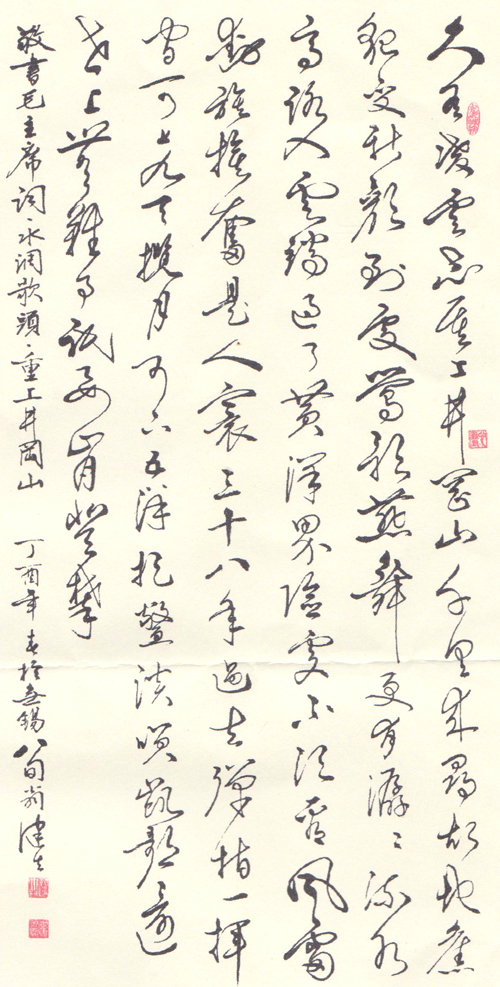 久有凌雲志重上井岡山千里来尋故地舊
貌變新顏到處鶯歌燕舞更有潺々流水
高路入雲端過了黄洋界險處不須看風雷
動旌旗奮是人寰三十八年過去彈指一揮
間可上九天攬月可下五洋捉鱉談笑凱歌還
世上無難事祇要肯登攀
敬書毛主席詞·水調歌頭·重上井岡山 丁酉年春於無錫八旬翁